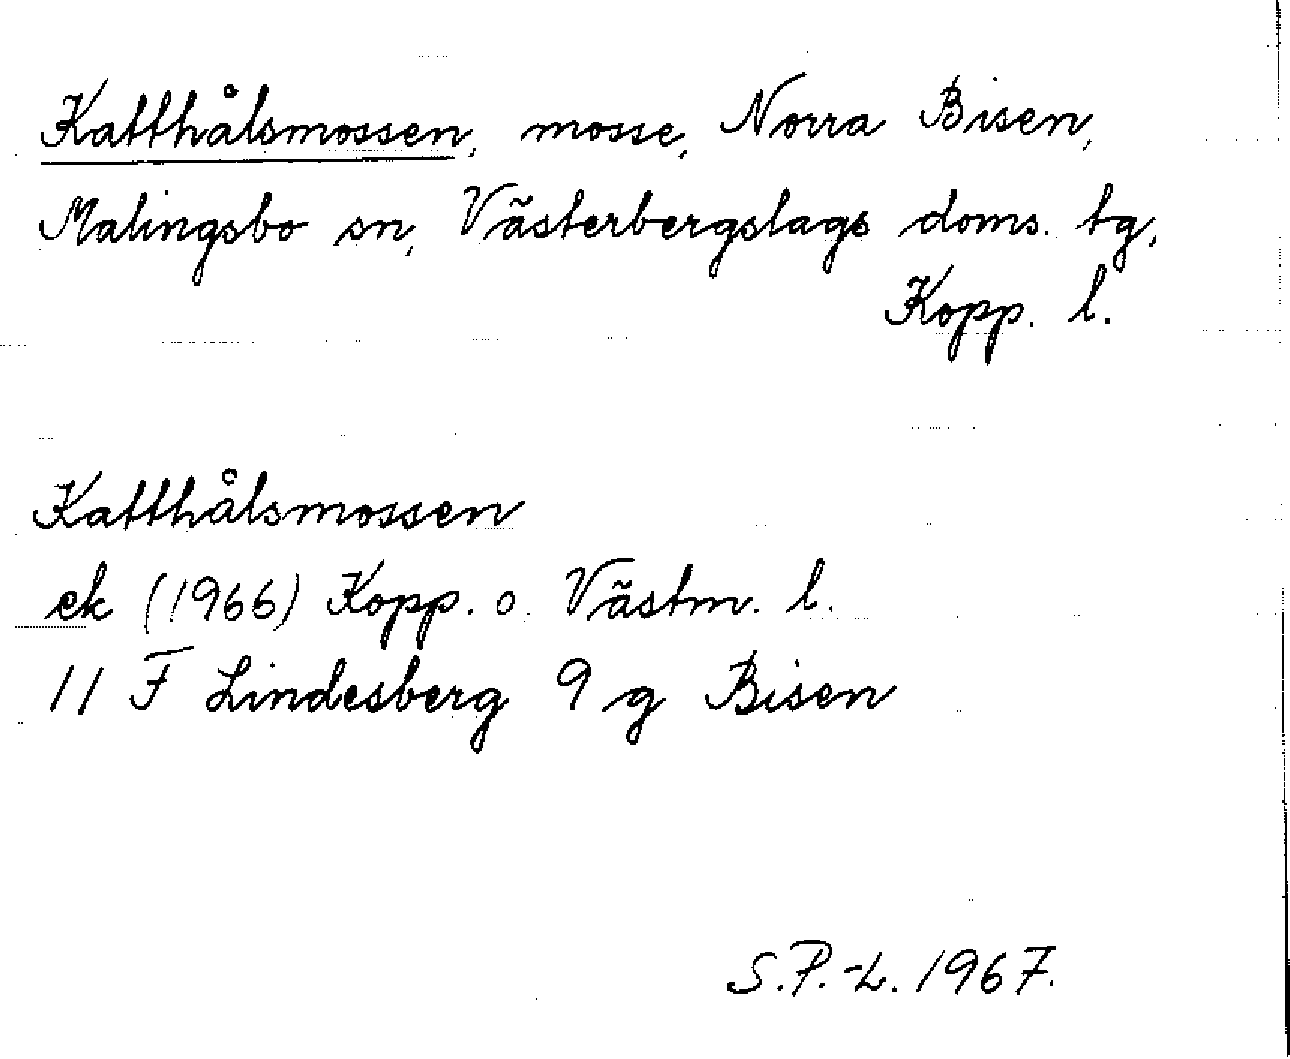 Katthålsmossen, mosse, Norra Bisen,
Malingsbo sn, Västerbergslags doms. tg,
Kopp. l.
Katthålsmossen
ek (1966) Kopp. o. Västm. l.
11 F Lindesberg 9 g Bisen
S.P.-L. 1967.